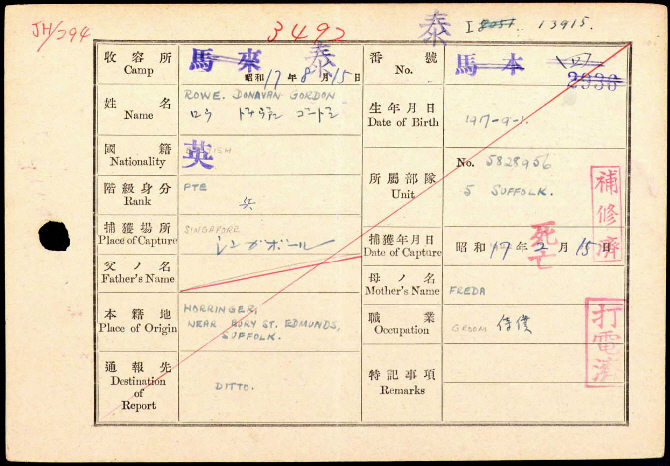 JH/294
3492
泰
I 8051 13915.
收容所 Camp
馬來 泰
昭和 17 年 8 月 15 日
番號 No.
馬本
127
2936
姓名 Name
ROWE. DONAVAN GORDON
ロウ ドナヴァン ゴードン
生年月日 Date of Birth
1917-9-1.
國籍 Nationality
英
所屬部隊 Unit
No. 5828956
5 SUFFOLK.
階級身分 Rank
PTE
兵
補修濟
捕獲場所 Place of Capture
SINGAPORE
シンガポール
捕獲年月日 Date of Capture
昭和 17 年 2 月 15 日
死亡
父ノ名 Father's Name
母ノ名 Mother's Name
FREDA
本籍地 Place of Origin
HORRINGER,
NEAR BURY ST. EDMUNDS,
SUFFOLK.
職業 Occupation
GROOM 侍僕
打電濟
通報先 Destination of Report
DITTO.
特記事項 Remarks